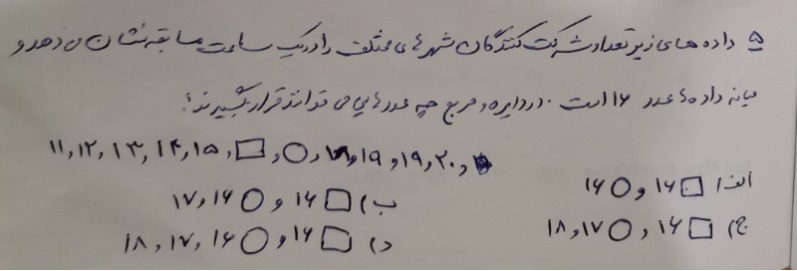 ۵ داده های زیر تعداد شرکت کنندگان شهرهای مختلف را در یک ساعت مسابقه نشان می دهد و
میانه داده ها عدد ۱۶ است . در دایره و مربع چه عددهایی می توانند قرار بگیرند؟
۱۱, ۱۲, ۱۳, ۱۴, ۱۵, □, ○, ۱۹, ۱۹, ۲۰,
الف) □ ۱۶ و ○ ۱۶
ب) □ ۱۶ و ○ ۱۶, ۱۷
ج) □ ۱۶, ○ ۱۷, ۱۸
د) □ ۱۶ و ○ ۱۶, ۱۷, ۱۸